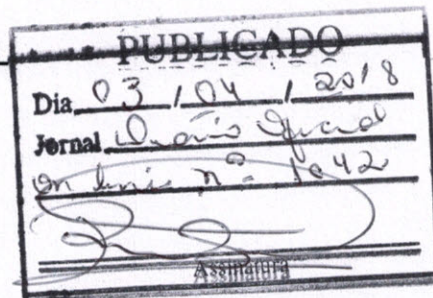 PUBLICADO
Dia 03 / 04 / 2018
Jornal Diário Oficial
On line nº 1042
Assinatura